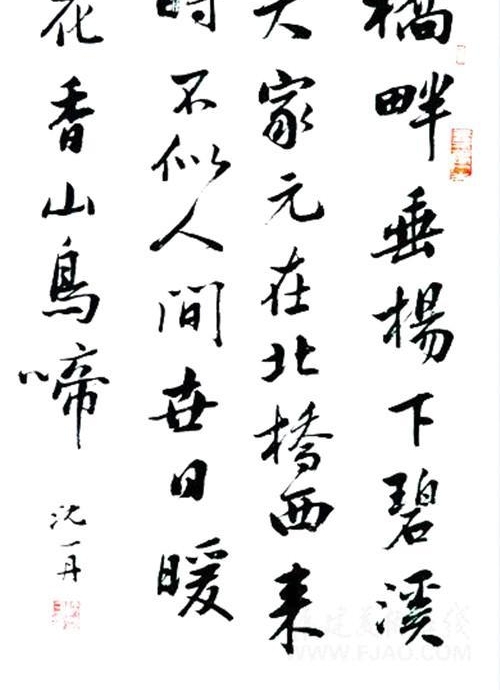 橋畔垂楊下碧溪
家元在北橋西来
時不似人間世日暖
花香山鳥啼
沈一丹
WWW.FJAO.COM